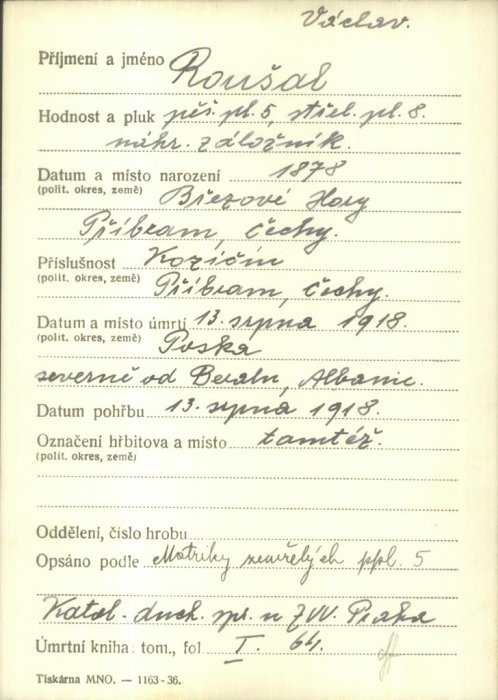 Václav.
Příjmení a jméno Roušal
Hodnost a pluk pěš. pl. 5, střel. pl. 8.
náhr. záložník.
Datum a místo narození 1878
(polit. okres, země) Březové Hory
Příbram, Čechy.
Příslušnost Kozičín
(polit. okres, země) Příbram, Čechy.
Datum a místo úmrtí 13. srpna 1918.
(polit. okres, země) Poska
severně od Beratu, Albanie.
Datum pohřbu 13. srpna 1918.
Označení hřbitova a místo tamtéž.
(polit. okres, země)
Oddělení, číslo hrobu
Opsáno podle Matriky zemřelých ppl. 5
Katol. duch. spr. u ZVV. Praha
Úmrtní kniha tom., fol I. 64.
Tiskárna MNO. — 1163-36.